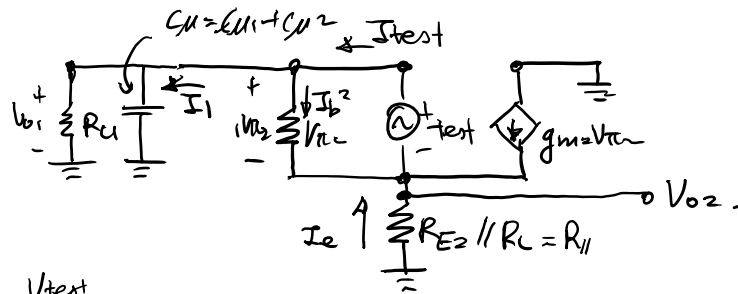 Cμ = Cμ1 + Cμ2
Itest
+
Vo1
-
RC1
I1
+
Vπ2
-
Ib2
rπ2
+
test
-
gm2Vπ2
Vo2.
Ie
RE2 // RL = R//
Vtest